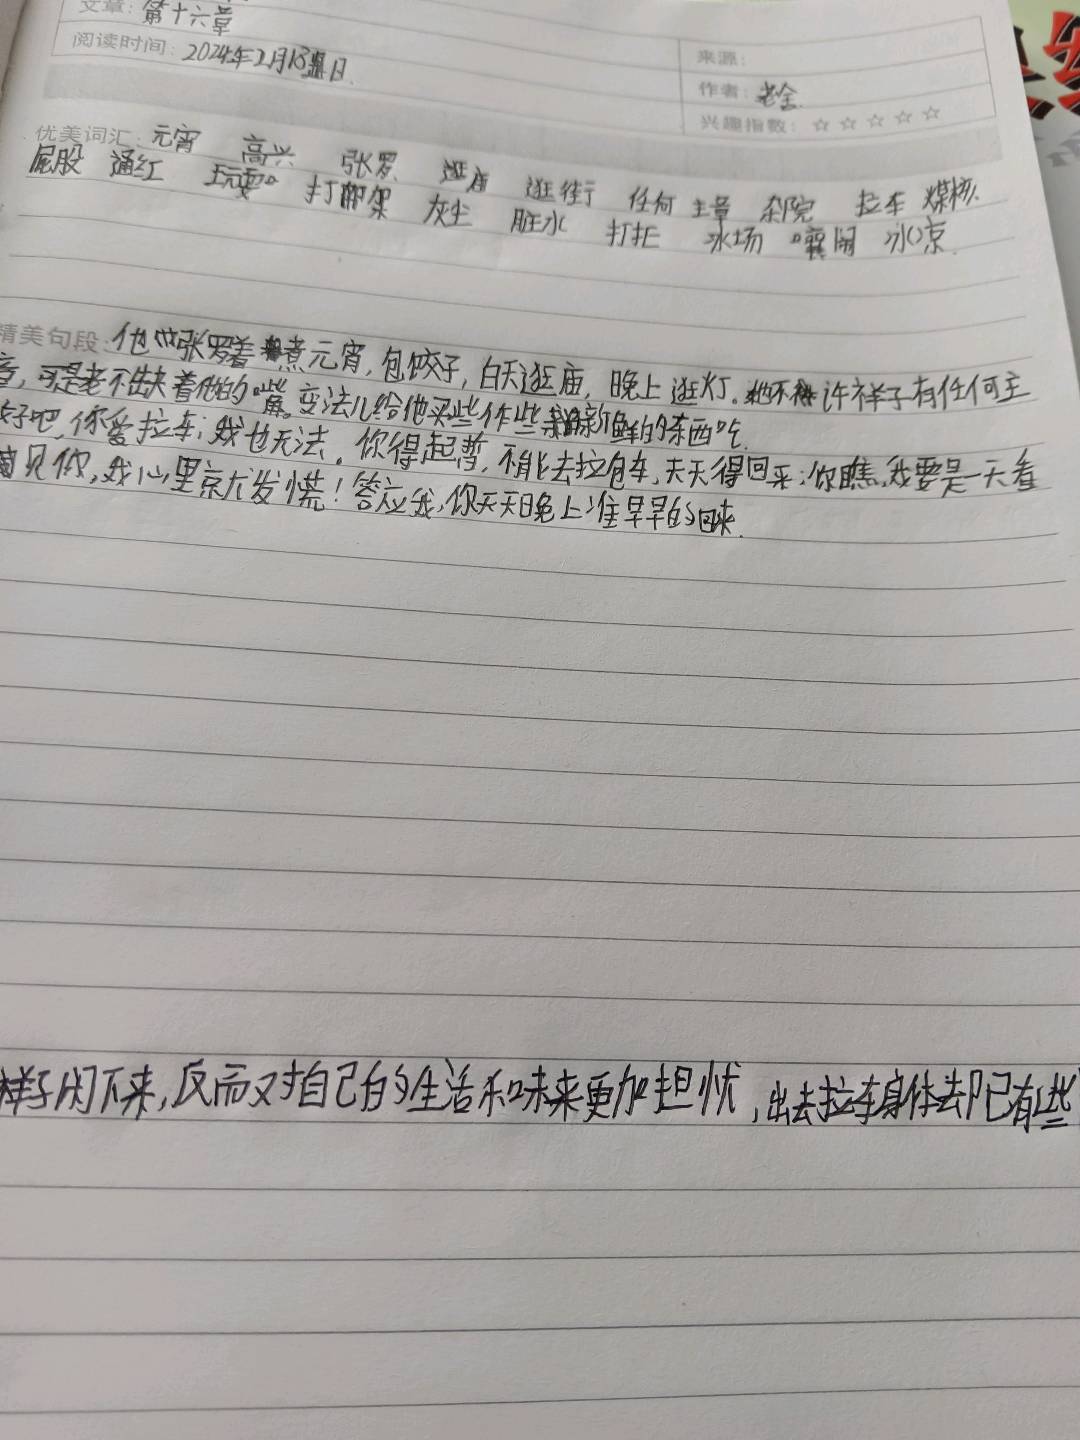 文章：第十六章
阅读时间：2024年2月13日
来源：
作者：老舍
兴趣指数：☆☆☆☆☆
优美词汇：元宵 高兴 张罗 逛庙 逛街 任何 主章 杂院 拉车 煤核
屁股 通红 玩耍 打 架 灰尘 脏水 打拒 冰场 嚷闹 冰凉
精美句段：他 张罗着煮元宵，包饺子，白天逛庙，晚上逛灯。她不许祥子有任何主
章，可是老不缺着他的嘴。变法儿给他买些作些新鲜的东西吃.
好吧，你爱拉车；我也无法。你得起誓，不能去拉包车，天天得回来；你瞧，我要是一天看
见你，我心里就发慌！答应我，你天天晚上准早早的回来.
祥子闲下来，反而对自己的生活和味来更加担忧，出去拉车身体却已有些